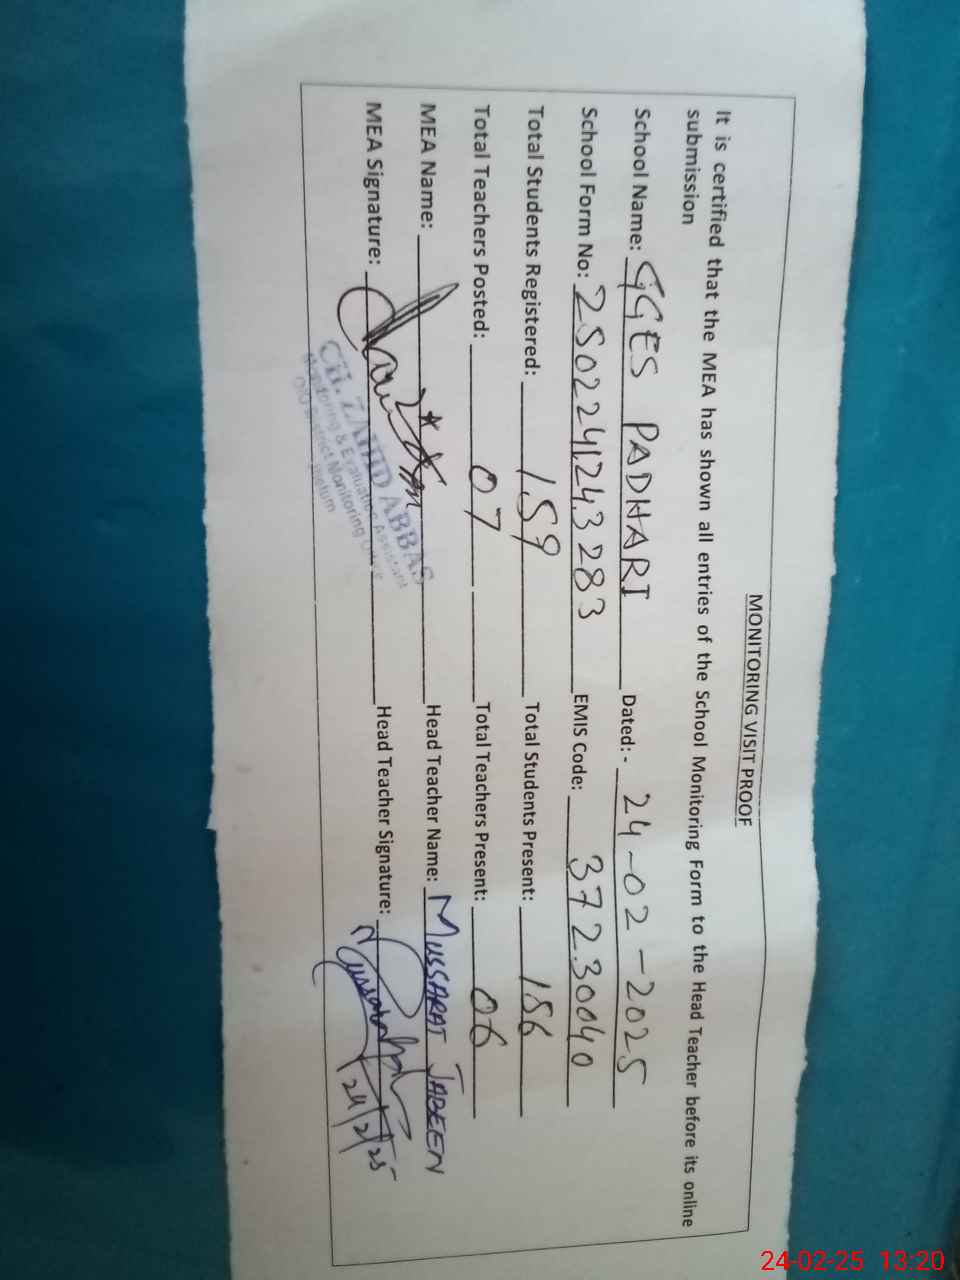 MONITORING VISIT PROOF
It is certified that the MEA has shown all entries of the School Monitoring Form to the Head Teacher before its online
submission
School Name: GGES PADHARI Dated:- 24-02-2025
School Form No: 2502241243283 EMIS Code: 37230040
Total Students Registered: 159 Total Students Present: 156
Total Teachers Posted: 07 Total Teachers Present: 06
MEA Name: Head Teacher Name: MUSSARAT JABEEN
MEA Signature: Head Teacher Signature: 24/2/25
CH. ZAHID ABBAS
Monitoring & Evaluation Assistant
District Monitoring
Jhelum
24-02-25 13:20